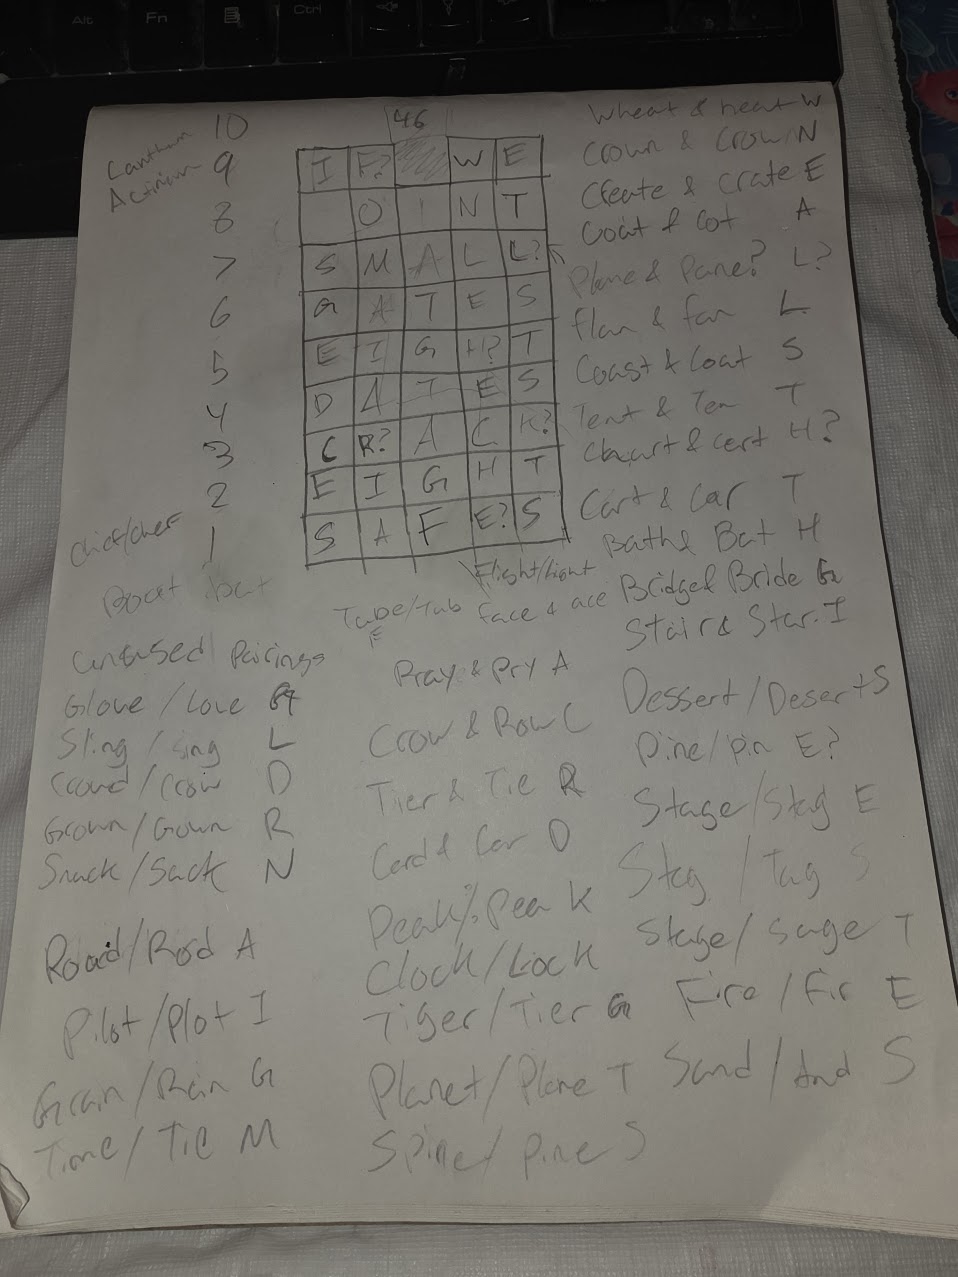 Alt Fn Ctrl
10 46 Wheat & heat W
Lanthum
Actinium 9 I F? W E Crown & Crow N
8 O I N T Create & Crate E
Coat & Cot A
7 S M A L L? Plane & Pane? L?
6 G A T E S flan & fan L
5 E I G H? T Coast & Coat S
4 D A T E S Tent & Ten T
3 C R? A C K? Chart & cert H?
2 E I G H T Cart & Car T
Chief/chef 1 S A F E? S Bath & Bat H
Boat bat Flight/Light
Tube/Tub face & ace Bridge & Bride G
E Stair & Star I
unused Pairings Pray & Pry A
Glove / Love G Dessert/Desert S
Sling / sing L Crow & Row C Pine/pin E?
Crowd / Crow D Tier & Tie R Stage/Stag E
Grown / Gown R Card & Car D Stag / Tag S
Snack / Sack N Peak/Pea K Stage/Sage T
Road/Rod A Clock/Lock
Pilot/Plot I Tiger/Tier G Fire / Fir E
Grain/Rain G Planet/Plane T Sand / And S
Time/Tie M Spine/Pine S